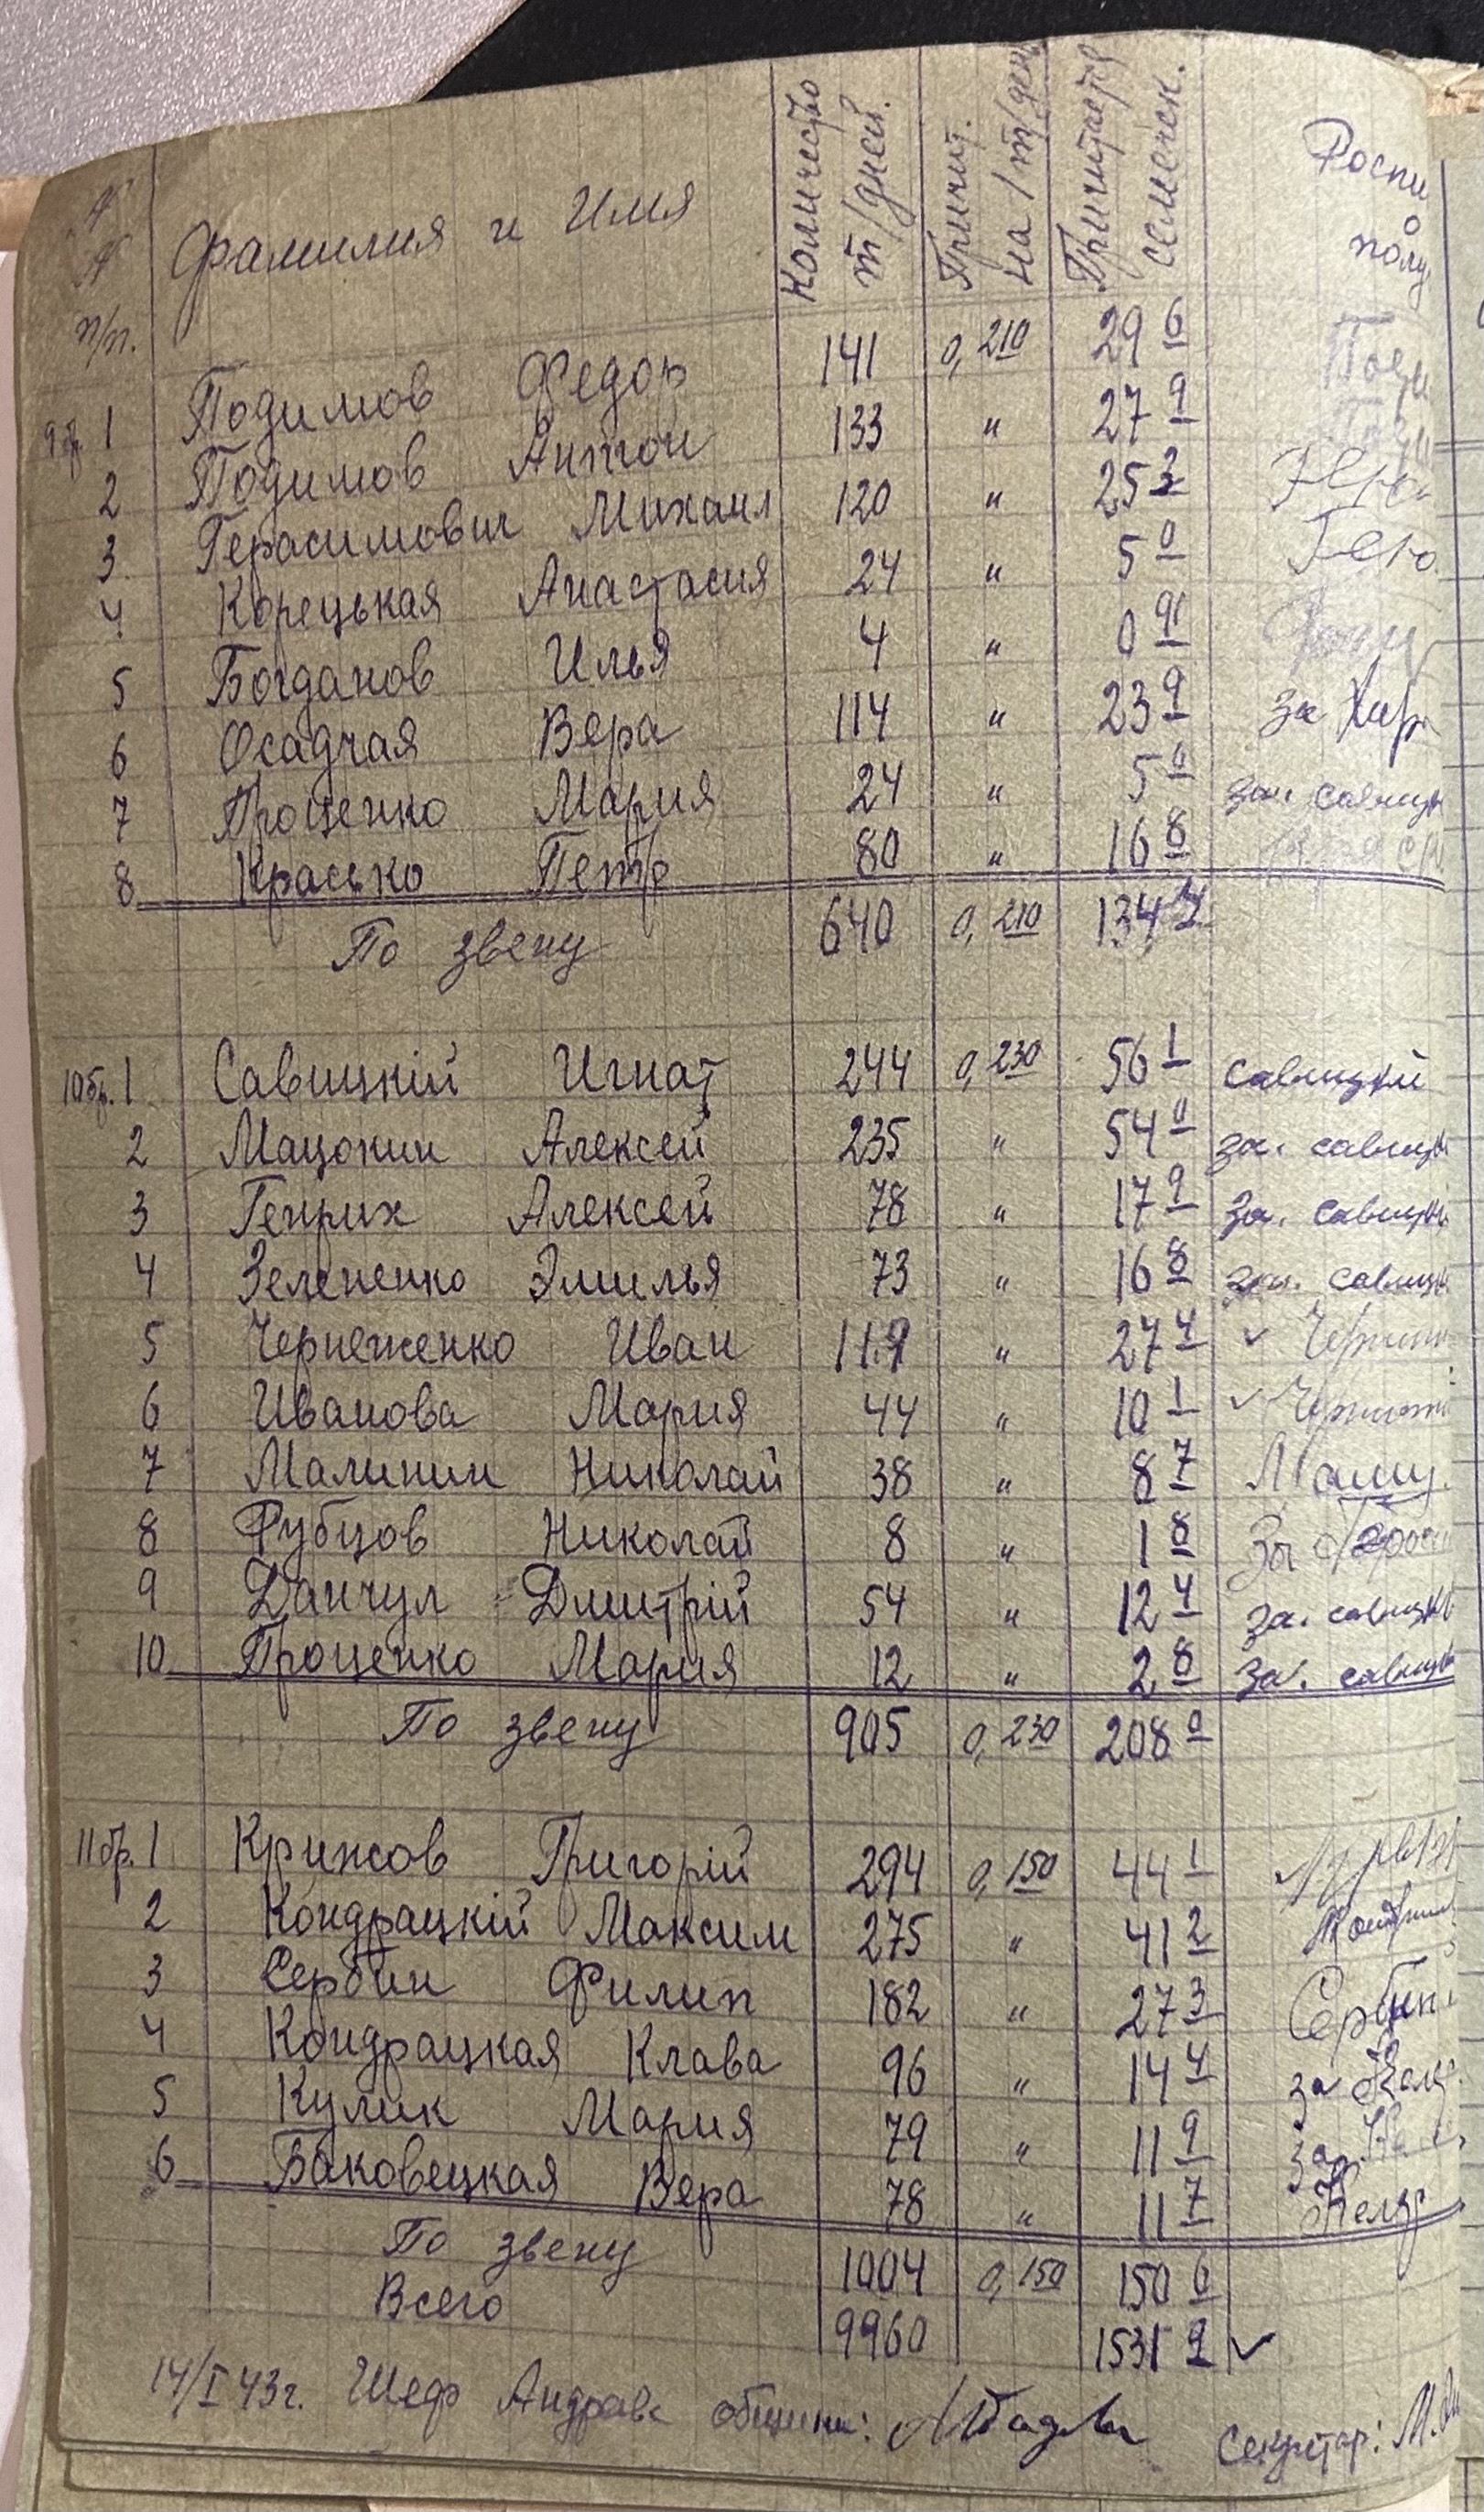 № № п/п. Фамилия и Имя Количество т/дней. Причит. на 1 т/день Причитается семечек. Роспи о полу
9 бр. 1 Подимов Федор 141 0,210 29 6
2 Подимов Антон 133 " 27 9
3 Герасимович Михаил 120 " 25 2
4 Корецькая Анастасия 24 " 5 0
5 Богданов Илья 4 " 0 91
6 Осадчая Вера 114 " 23 9 за
7 Проценко Мария 24 " 5 0 за. савицк
8 Красько Петр 80 " 16 8
По звену 640 0,210 134 4
10 бр. 1 Савицкій Игнат 244 0,230 56 1 савицкий
2 Мацокин Алексей 235 " 54 0 за. савицк
3 Генрих Алексей 78 " 17 9 за. савицки
4 Зелененко Эмилья 73 " 16 8 за. савицк
5 Чернеженко Иван 119 " 27 4 ✓
6 Иванова Мария 44 " 10 1 ✓
7 Малинин Николай 38 " 8 7
8 Рубцов Николай 8 " 1 8 за
9 Данчул Дмитрій 54 " 12 4 за. савицк
10 Проценко Мария 12 " 2 8 за. савицк
По звену 905 0,230 208 0
11 бр. 1 Крижов Григорій 294 0,150 44 1
2 Кондрацкій Максим 275 " 41 2
3 Сербин Филип 182 " 27 3 Сербин
4 Кондрацкая Клава 96 " 14 4 за Конд
5 Кулик Мария 79 " 11 9 за
6 Баковецкая Вера 78 " 11 7
По звену 1004 0,150 150 6
Всего 9960 1531 9 ✓
14/I 43г. Шеф Андрав общини: Секретар: М.